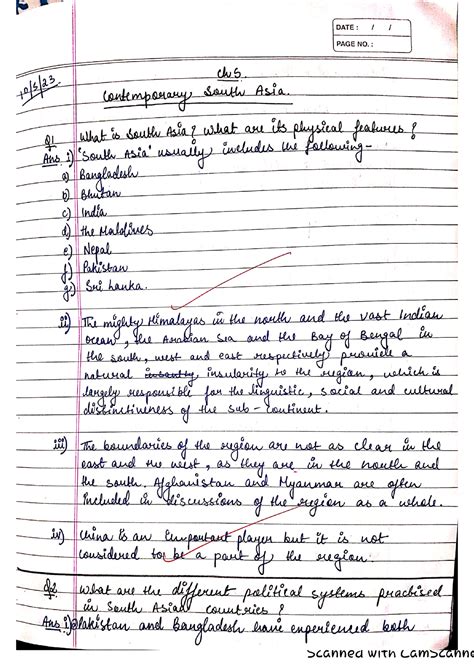 DATE: / /
PAGE NO.:
10/5/23
Ch 5.
Contemporary South Asia.
Q1 What is South Asia? What are its physical features?
Ans. i) 'South Asia' usually includes the following-
a) Bangladesh
b) Bhutan
c) India
d) the Maldives
e) Nepal
f) Pakistan
g) Sri Lanka.
ii) The mighty Himalayas in the north and the vast Indian
Ocean, the Arabian Sea and the Bay of Bengal in
the south, west and east respectively provide a
natural insularity to the region, which is
largely responsible for the linguistic, social and cultural
distinctiveness of the sub-continent.
iii) The boundaries of the region are not as clear in the
east and the west, as they are in the north and
the south. Afghanistan and Myanmar are often
included in discussions of the region as a whole.
iv) China is an important player but it is not
considered to be a part of the region.
Q2. What are the different political systems practised
in South Asian countries?
Ans. i) Pakistan and Bangladesh have experienced both
Scanned with CamScanne